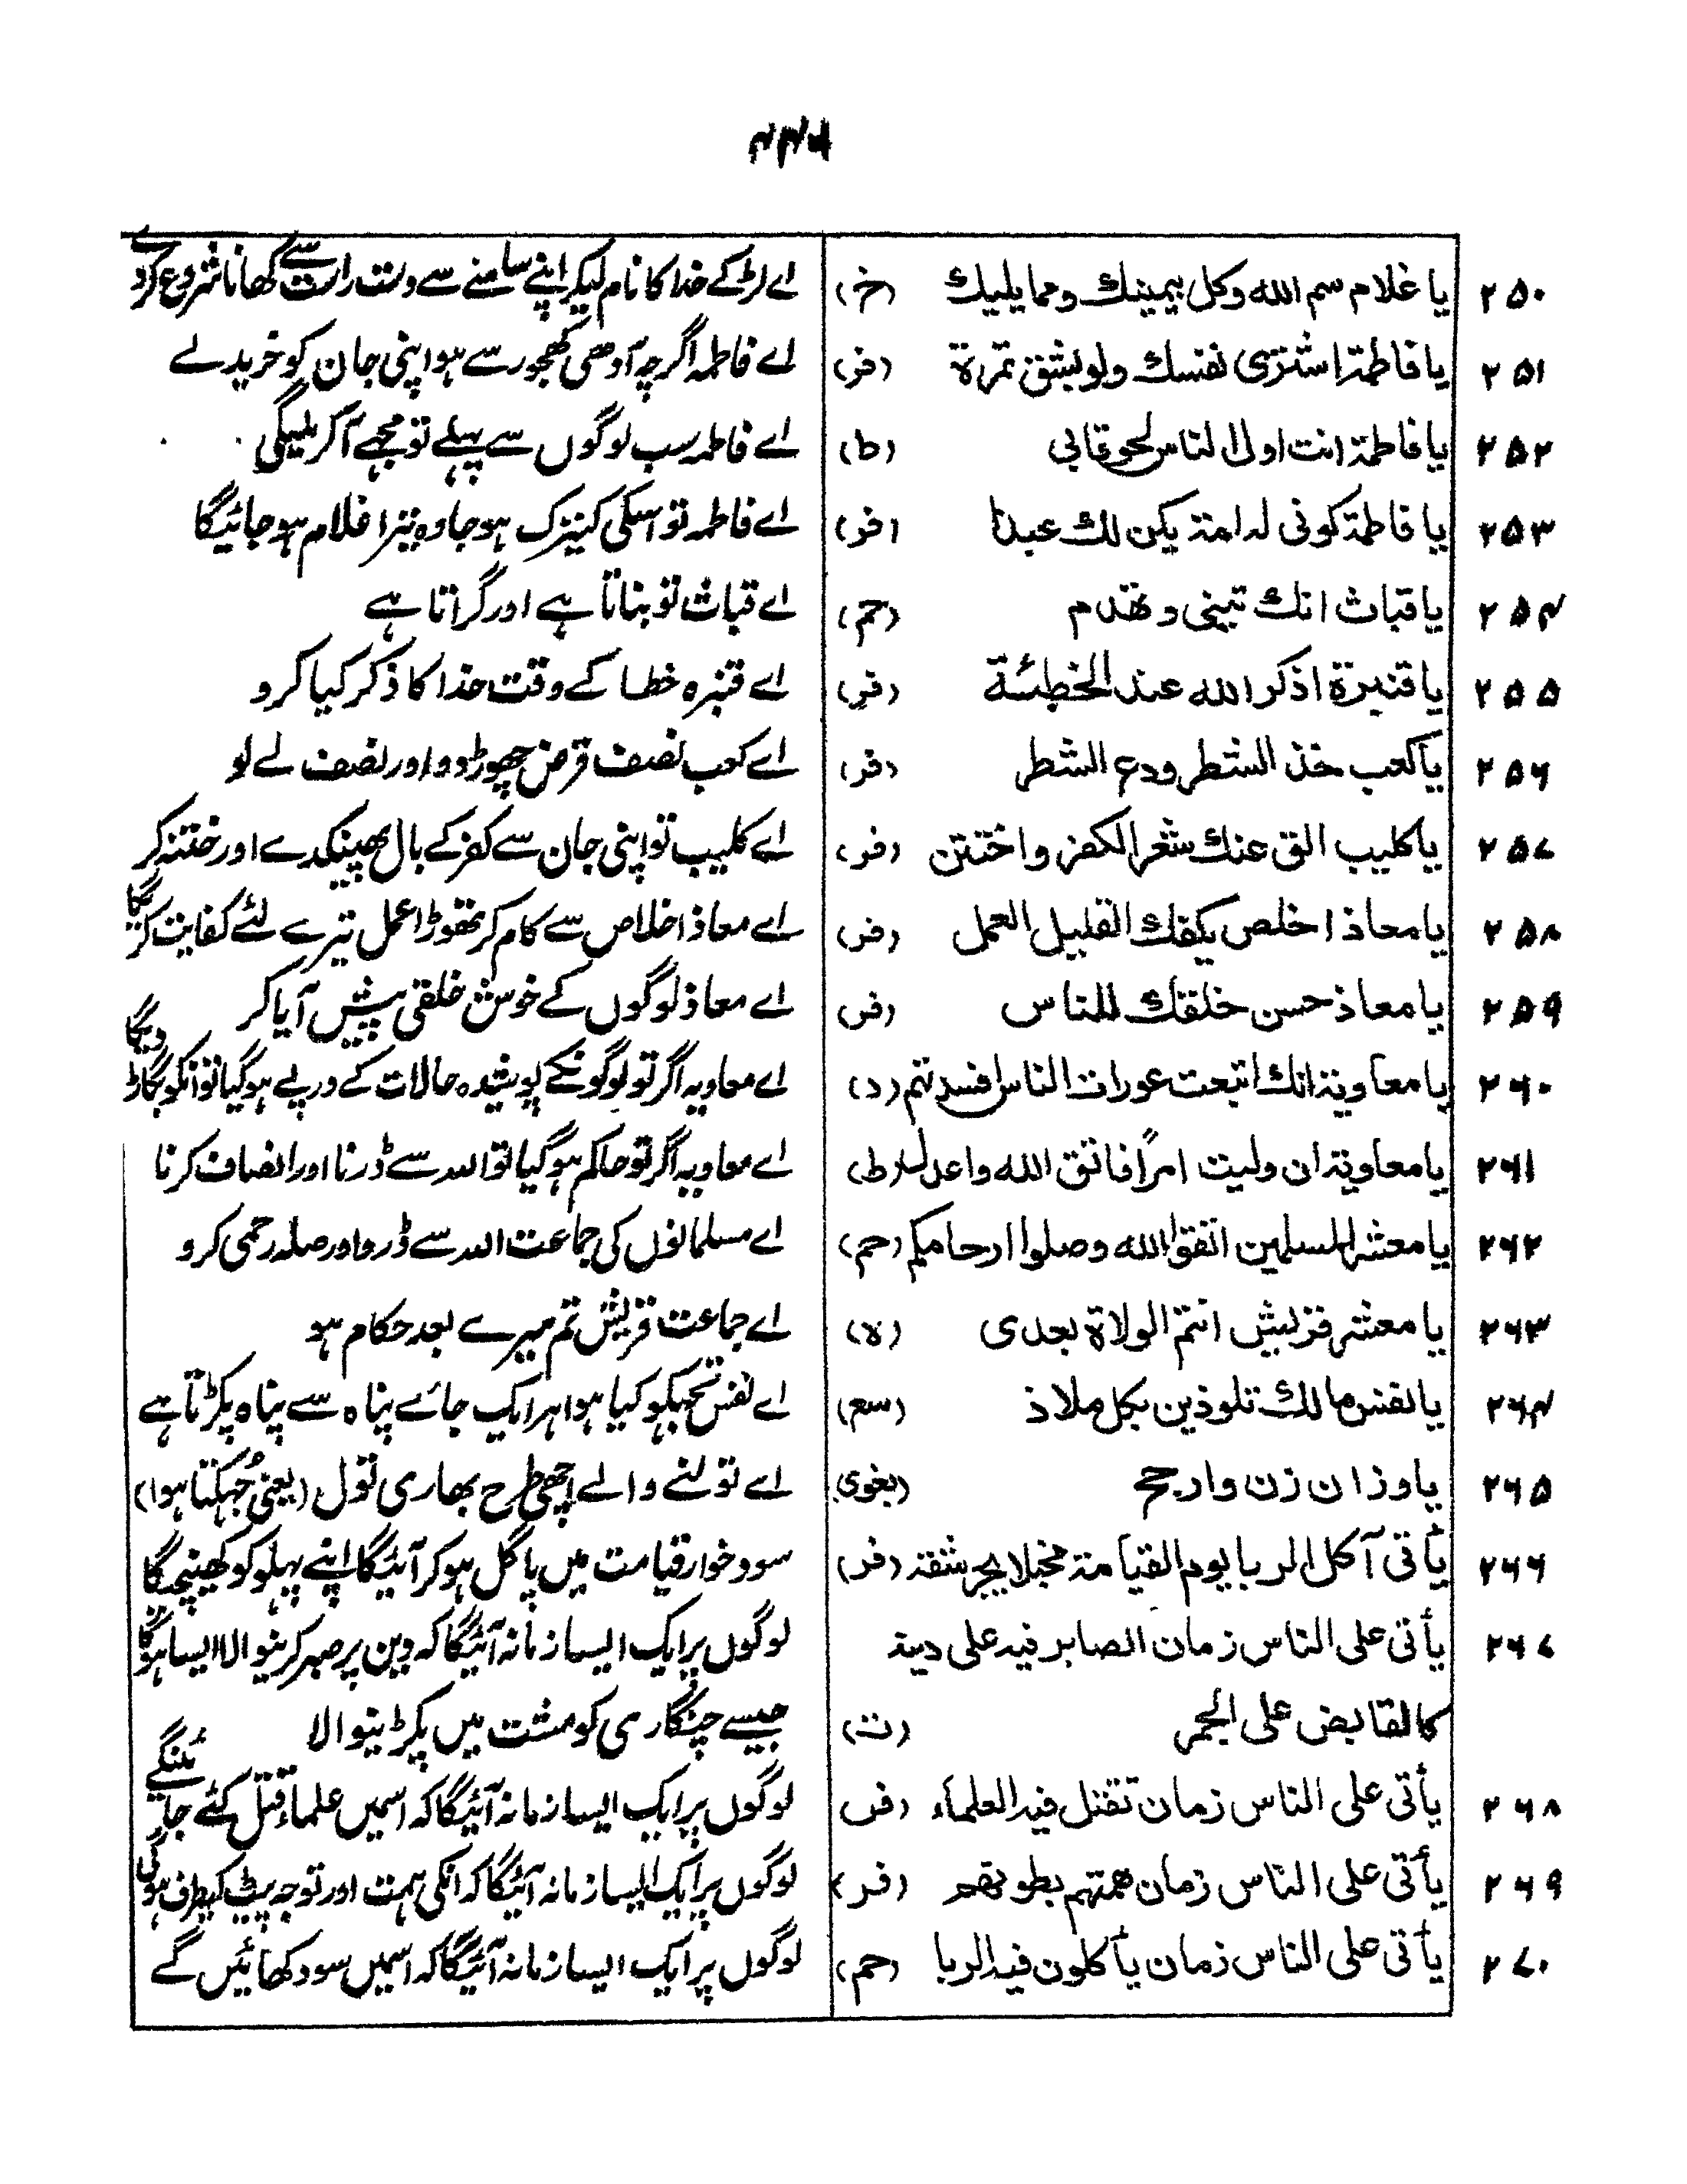 ۲۵۰ یا غلام سم الله وکل بیمینك ومما یلیك (خ) اے لڑکے خدا کا نام لیکر اپنے سامنے سے دست راست سے کھانا شروع کردے
۲۵۱ یا فاطمة اشتری نفسك ولو بشق تمرة (فر) اے فاطمہ اگرچہ آدھی کھجور سے ہو اپنی جان کو خرید لے
۲۵۲ یا فاطمة انت اول الناس لحوقا بی (ط) اے فاطمہ سب لوگوں سے پہلے تو مجھے آکر ملیگی
۲۵۳ یا فاطمة کونی له امة یکن لك عبدا (فر) اے فاطمہ تو اسکی کنیزک ہوجا وہ تیرا غلام ہو جائیگا
۲۵۴ یا قباث انك تبینی و تهدم (حم) اے قباث تو بناتا ہے اور گراتا ہے
۲۵۵ یا قنبرة اذکر الله عند الخطیئة (فر) اے قنبرہ خطا کے وقت خدا کا ذکر کیا کرو
۲۵۶ یا کعب خذ الشطر ودع الشطر (فر) اے کعب نصف قرض چھوڑدو اور نصف لے لو
۲۵۷ یا کلیب الق عنك شعر الکفر واختتن (فر) اے کلیب تو اپنی جان سے کفر کے بال پھینکدے اور ختنہ کر
۲۵۸ یا معاذ اخلص یکفك القلیل العمل (فر) اے معاذ اخلاص سے کام کر تھوڑا عمل تیرے لئے کفایت کریگا
۲۵۹ یا معاذ حسن خلقك للناس (فر) اے معاذ لوگوں کے خوش خلقی پیش آیا کر
۲۶۰ یا معاویة انك اتبعت عورات الناس افسدتهم (د) اے معاویہ اگر تو لوگونکے پوشیدہ حالات کے درپے ہوگیا تو انکو بگاڑ دیگا
۲۶۱ یا معاویة ان ولیت امرًا فاتق الله واعدل (ط) اے معاویہ اگر تو حاکم ہوگیا تو اللہ سے ڈرنا اور انصاف کرنا
۲۶۲ یا معشر المسلمین اتقوا الله وصلوا ارحامکم (حم) اے مسلمانوں کی جماعت اللہ سے ڈرو اور صلہ رحمی کرو
۲۶۳ یا معشر قریش انتم الولاة بعدی (ه) اے جماعت قریش تم میرے بعد حکام ہو
۲۶۴ یا نفس مالك تلوذین بکل ملاذ (سع) اے نفس تجھکو کیا ہوا ہر ایک جائے پناہ سے پناہ پکڑتا ہے
۲۶۵ یا وزان زن وارجح (بغوی) اے تولنے والے اچھی طرح بھاری تول (یعنی جُھکتا ہوا)
۲۶۶ یأتی آکل الربا یوم القیامة مخبلا یجر شقه (فر) سود خوار قیامت میں پاگل ہوکر آئیگا اپنے پہلو کو کھینچیگا
۲۶۷ یأتی علی الناس زمان الصابر فیه علی دینه لوگوں پر ایک ایسا زمانہ آئیگا کہ دین پر صبر کرنیوالا ایسا ہوگا
کالقابض علی الجمر (ت) جیسے چنگاری کو مشت میں پکڑنیوالا
۲۶۸ یأتی علی الناس زمان تقتل فیه العلماء (فر) لوگوں پر ایک ایسا زمانہ آئیگا کہ اسمیں علماء قتل کئے جائینگے
۲۶۹ یأتی علی الناس زمان همتهم بطونهم (فر) لوگوں پر ایک ایسا زمانہ آئیگا کہ انکی ہمت اور توجہ پیٹ کیطرف ہوگی
۲۷۰ یأتی علی الناس زمان یأکلون فیه الربا (حم) لوگوں پر ایک ایسا زمانہ آئیگا کہ اسمیں سود کھائیں گے